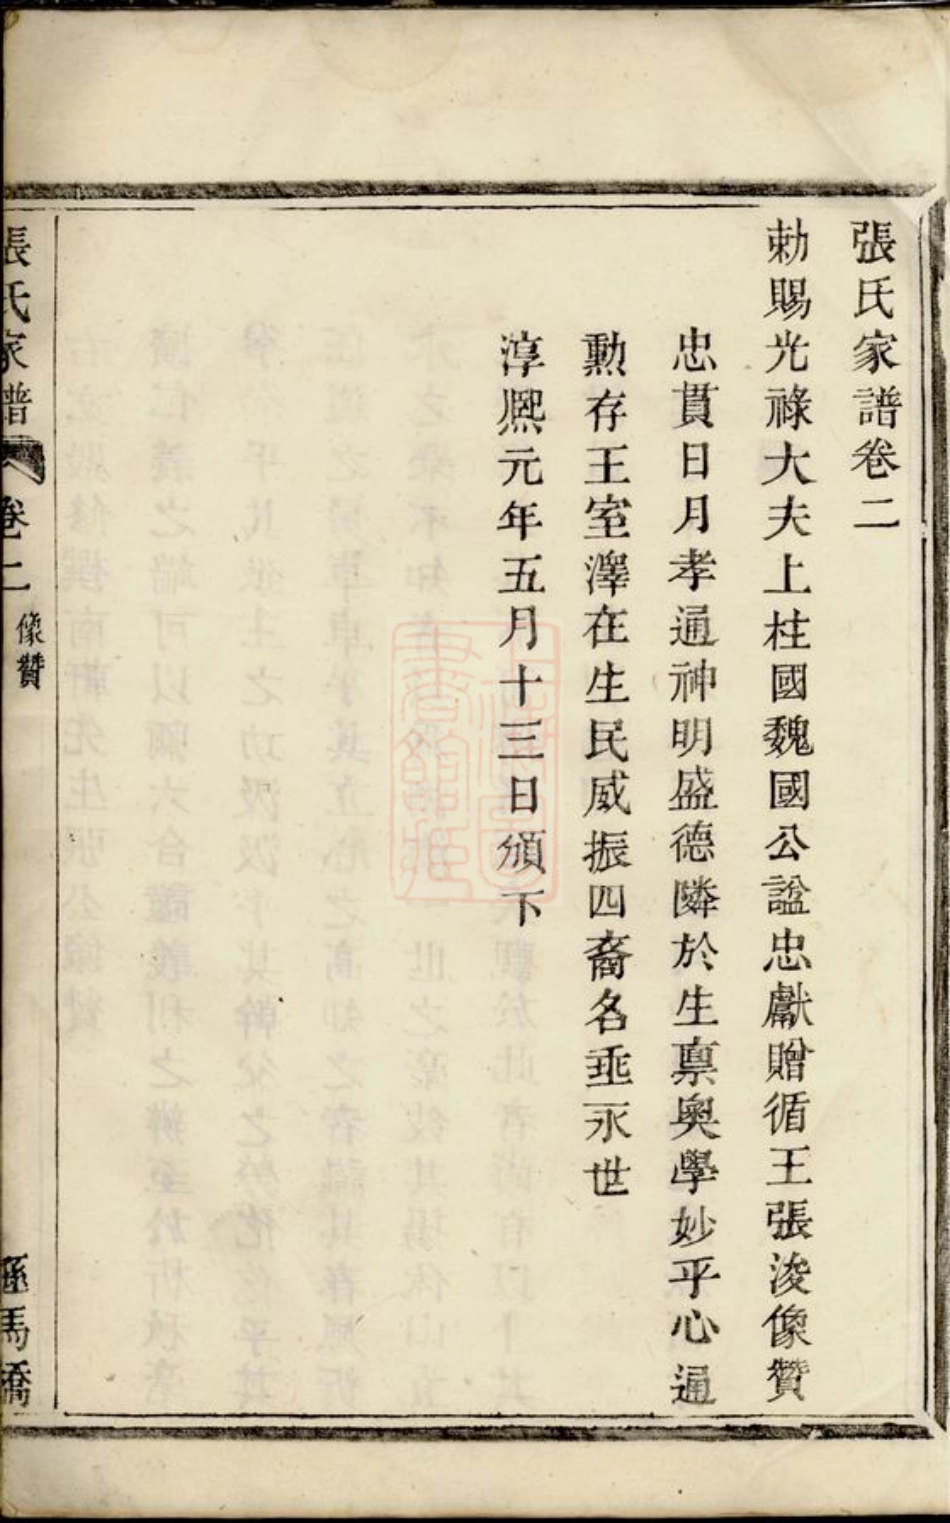 張氏家譜卷二
勅賜光祿大夫上柱國魏國公諡忠獻贈循王張浚像贊
忠貫日月孝通神明盛德隣於生禀奥學妙乎心通
勳存王室澤在生民威振四裔名垂永世
淳熈元年五月十三日頒下
張氏家譜 卷二 像贊 孫馬橋